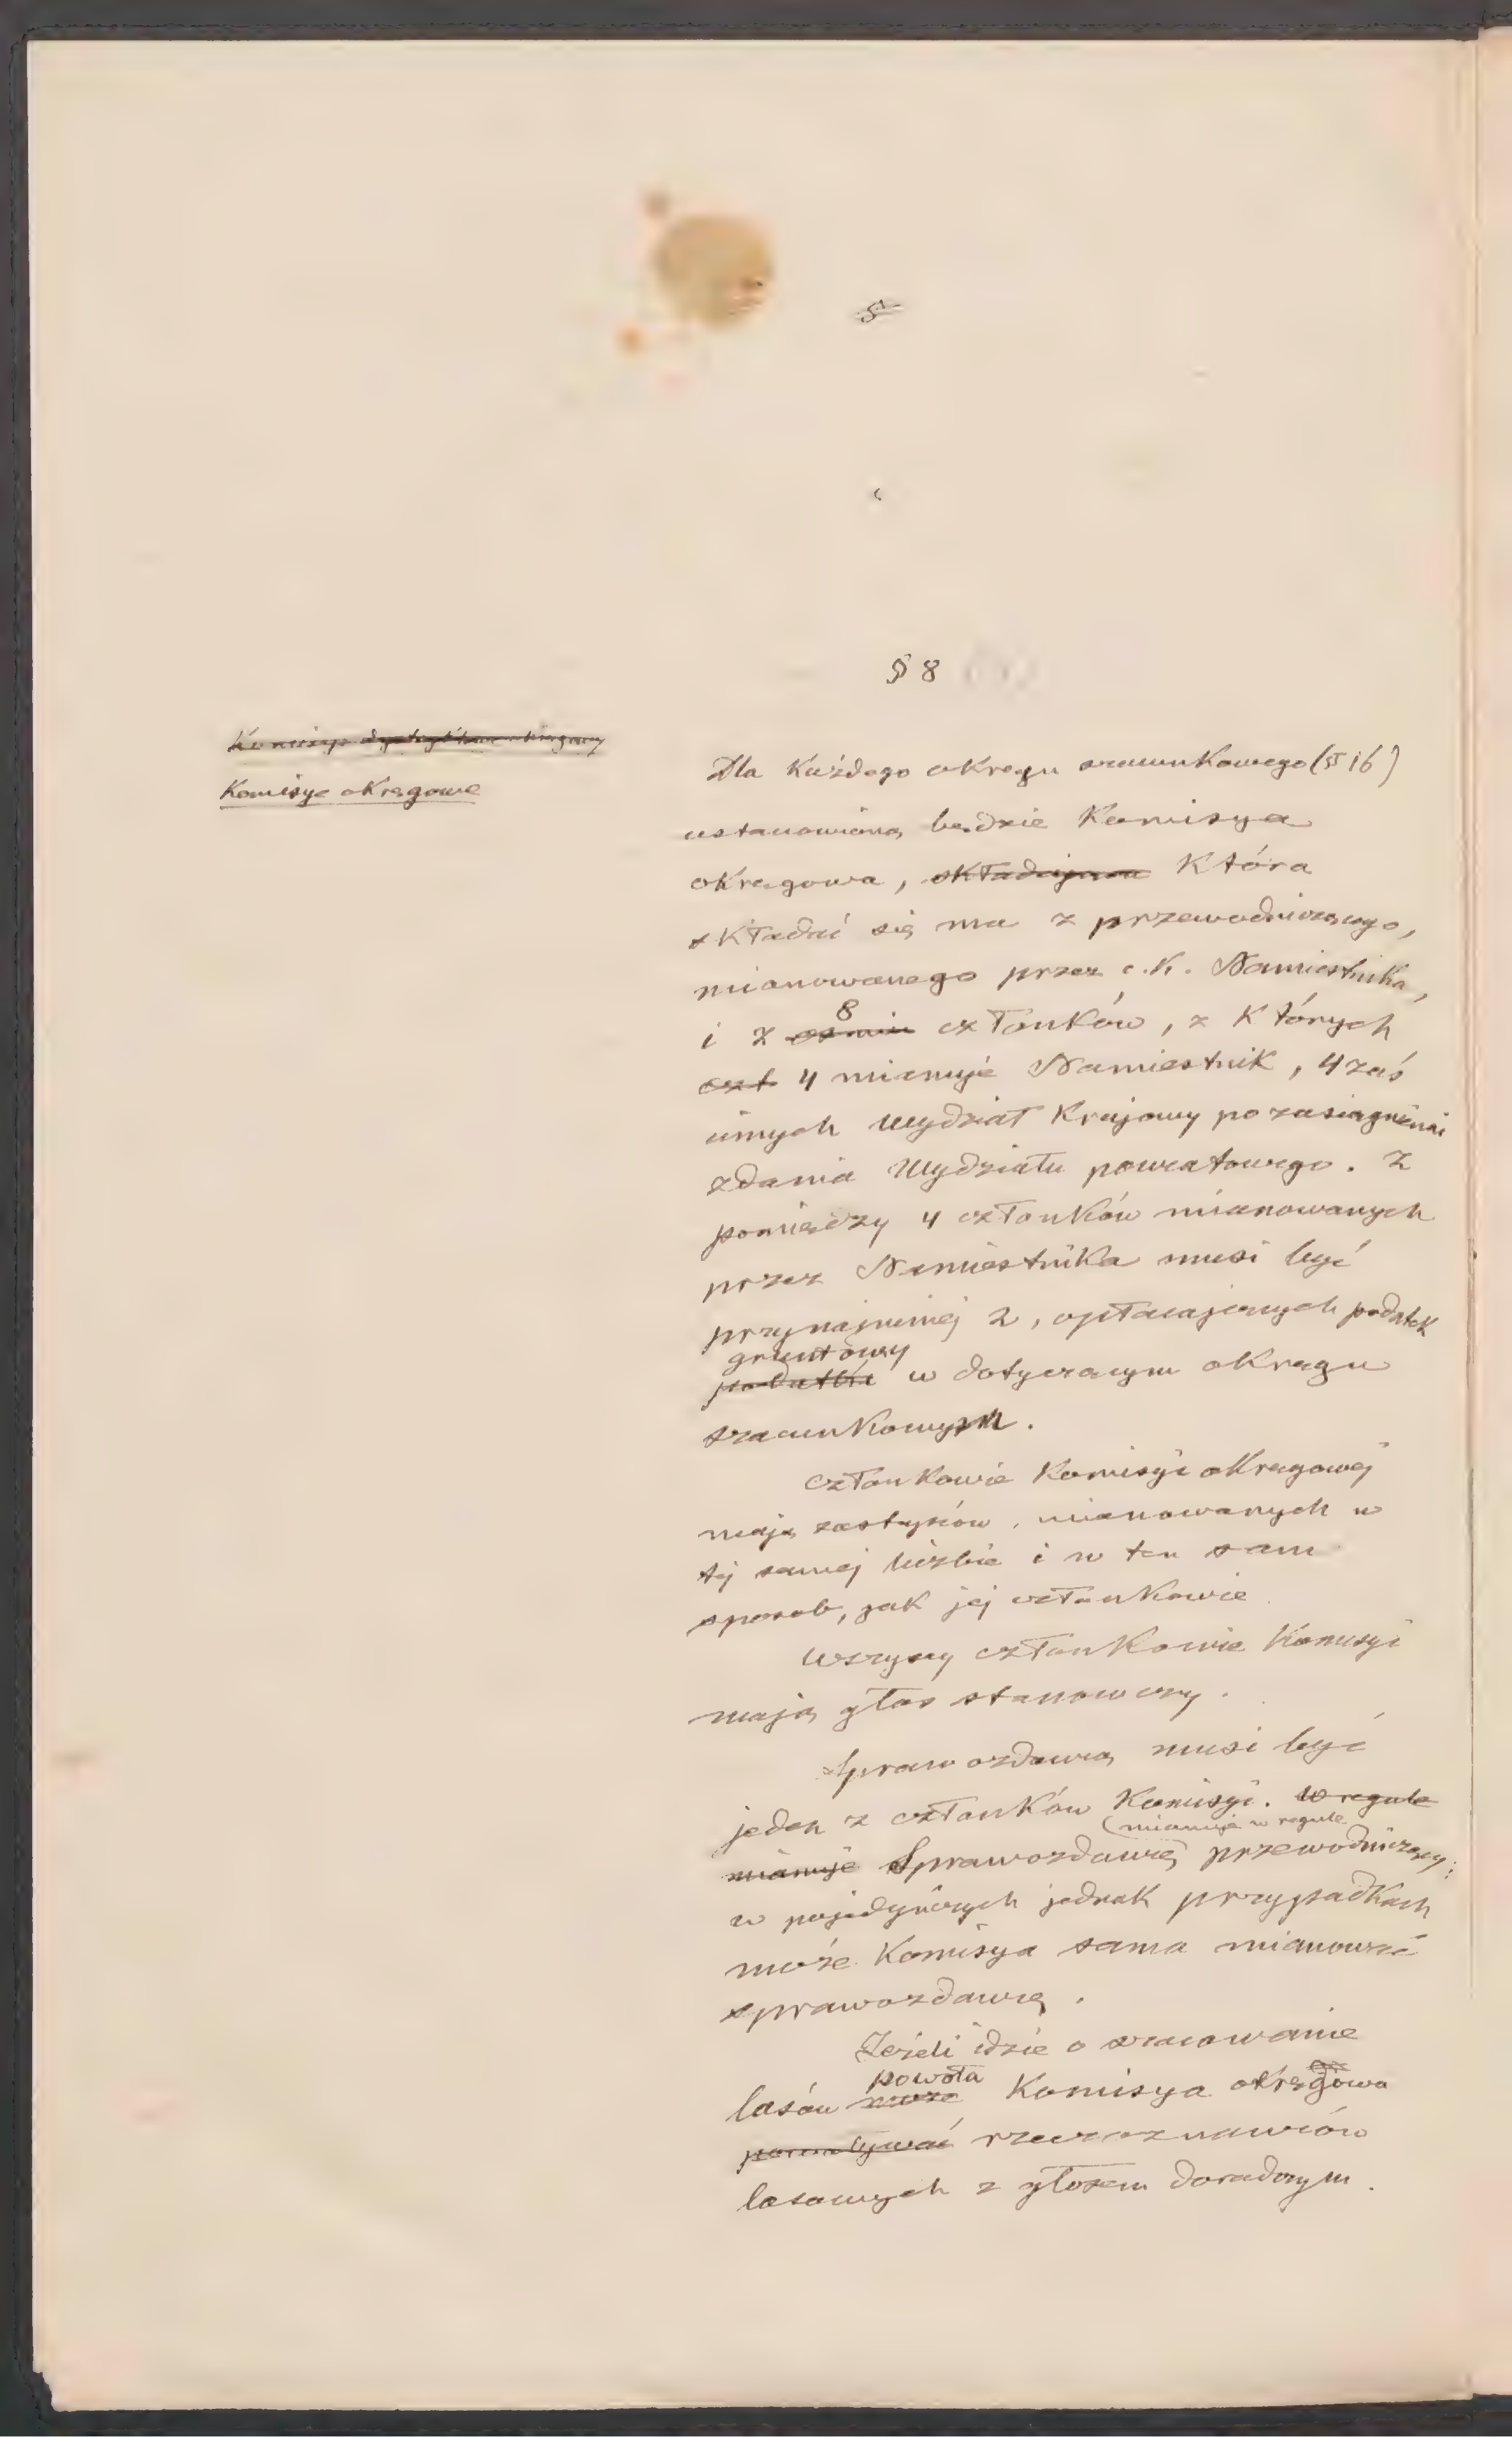 § 8
Komisye okręgowe
Dla każdego okręgu szacunkowego (§ 16)
ustanowioną będzie Komisya
okręgowa, ~~składająca~~ która
składać się ma z przewodniczącego,
mianowanego przez c.k. Namiestnika,
i z ~~ośmiu~~ 8 członków, z których
~~czt~~ 4 mianuje Namiestnik, 4 zaś
innych Wydział Krajowy po zasiągnieniu
zdania Wydziału powiatowego. Z
pomiędzy 4 członków mianowanych
przez Namiestnika musi być
przynajmniej 2, opłacających podatek
gruntowy
~~podatki~~ w dotyczącym okręgu
szacunkowym.
Członkowie Komisyi okręgowej
mają zastępców, mianowanych w
tej samej liczbie i w ten sam
sposób, jak jej członkowie
Wszyscy członkowie Komisyi
mają głos stanowczy.
Sprawozdawcą musi być
jeden z członków Komisyi. ~~W regule~~
(mianuje w regule
~~mianuje~~ Sprawozdawcę przewodniczący;
w pojedyńczych jednak przypadkach
może Komisya sama mianować
sprawozdawcę.
Jeżeli idzie o szacowanie
powoła
lasów ~~może~~ Komisya okręgowa
~~powoływać~~ rzeczoznawców
lasowych z głosem doradczym.